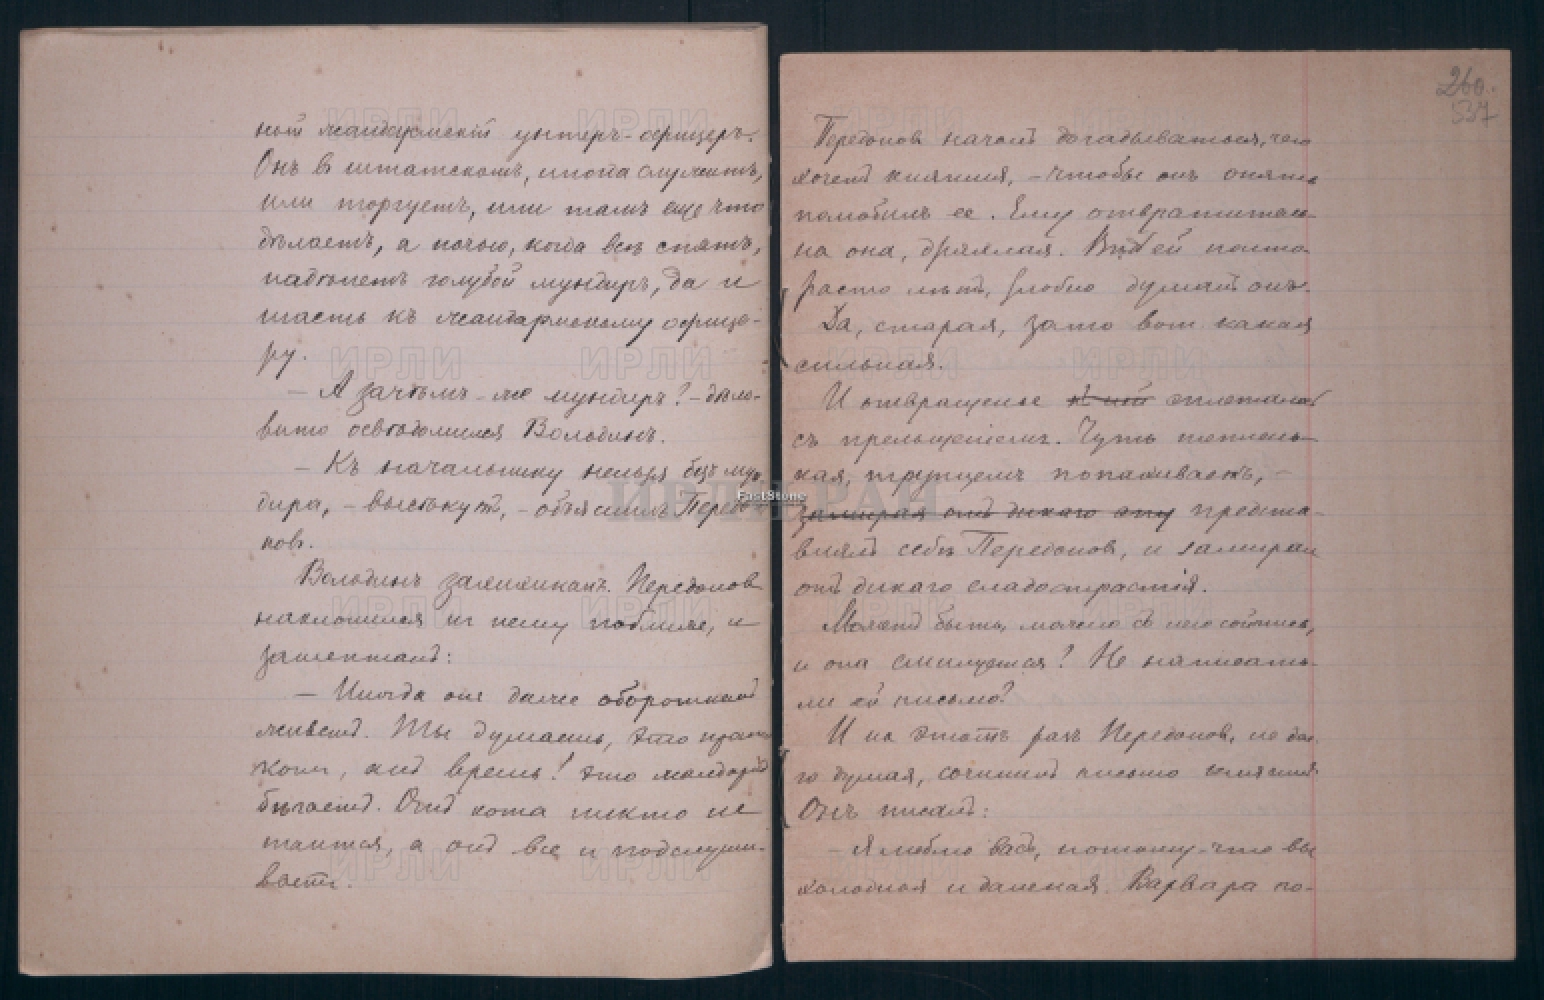 ной жандармскiй унтеръ-офицеръ.
Онъ въ штатскомъ, иногда служитъ,
или торгуетъ, или тамъ еще что
дѣлаетъ, а ночью, когда всѣ спятъ,
надѣнетъ голубой мундиръ, да и
шасть къ жандармскому офице-
ру.
— А зачѣмъ-же мундиръ? – дѣло-
вито освѣдомился Володинъ.
— Къ начальнику нельзя безъ мун-
дира, – высѣкутъ, – объяснилъ Передо-
новъ.
Володинъ захихикалъ. Передоновъ
наклонился къ нему поближе, и
зашепталъ:
— Иногда онъ даже оборотнемъ
живетъ. Ты думаешь, это просто
котъ, анъ врешь! это жандармъ
бѣгаетъ. Отъ кота никто не
таится, а онъ все и подслуши-
ваетъ.
260.
537
Передоновъ началъ догадываться, чего
хочетъ княгиня, – чтобы онъ опять
полюбилъ ее. Ему отвратитель-
на она, дряхлая. Вѣдь ей полто-
раста лѣтъ, злобно думалъ онъ.
Да, старая, зато вотъ какая
сильная.
И отвращенье къ ней сплеталось
съ прельщенiемъ. Чуть теплень-
кая, трупцемъ попахиваетъ, –
замирая отъ дикаго предста-
влялъ себѣ Передоновъ, и замиралъ
отъ дикаго сладострастiя.
Можетъ быть, можно съ нею сойтись,
и она смилуется? Не написать-
ли ей письмо?
И на этотъ разъ Передоновъ, не дол-
го думая, сочинилъ письмо княгинѣ.
Онъ писалъ:
– Я люблю васъ, потому-что вы
холодная и далекая. Варвара по-
ИРЛИ РАН
FastStone
ИРЛИ